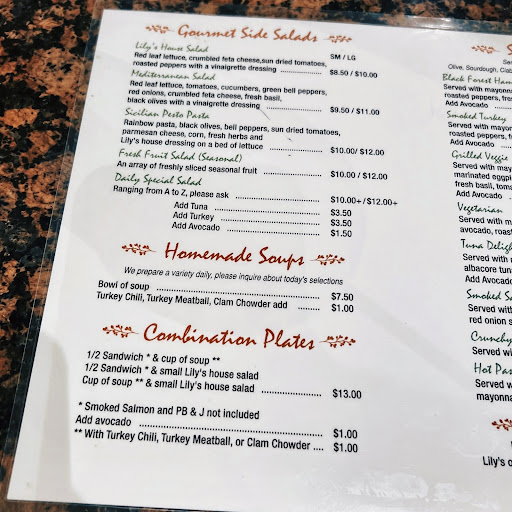 Gourmet Side Salads
Lily's House Salad SM / LG
Red leaf lettuce, crumbled feta cheese,sun dried tomatoes,
roasted peppers with a vinaigrette dressing $8.50 / $10.00
Mediterranean Salad
Red leaf lettuce, tomatoes, cucumbers, green bell peppers,
red onions, crumbled feta cheese, fresh basil,
black olives with a vinaigrette dressing $9.50 / $11.00
Sicilian Pesto Pasta
Rainbow pasta, black olives, bell peppers, sun dried tomatoes,
parmesan cheese, corn, fresh herbs and
Lily's house dressing on a bed of lettuce $10.00/ $12.00
Fresh Fruit Salad (Seasonal)
An array of freshly sliced seasonal fruit $10.00 / $12.00
Daily Special Salad
Ranging from A to Z, please ask $10.00+ / $12.00+
Add Tuna $3.50
Add Turkey $3.50
Add Avocado $1.50
Homemade Soups
We prepare a variety daily, please inquire about today's selections
Bowl of soup $7.50
Turkey Chili, Turkey Meatball, Clam Chowder add $1.00
Combination Plates
1/2 Sandwich * & cup of soup **
1/2 Sandwich * & small Lily's house salad
Cup of soup ** & small Lily's house salad $13.00
* Smoked Salmon and PB & J not included
Add avocado $1.00
** With Turkey Chili, Turkey Meatball, or Clam Chowder .... $1.00
S
Olive, Sourdough,
Black Forest Ham
Served with mayonna
roasted peppers, fres
Add Avocado
Smoked Turkey
Served with mayo
roasted peppers, f
Add Avocado
Grilled Veggie
Served with may
marinated eggpl
fresh basil, tom
Add Avocado
Vegetarian
Served with m
avocado, roas
Tuna Deligh
Served with
albacore tun
Add Avocad
Smoked Sa
Served with
red onion s
Crunchy
Served wi
Hot Pas
Served
mayonna
Lily's o